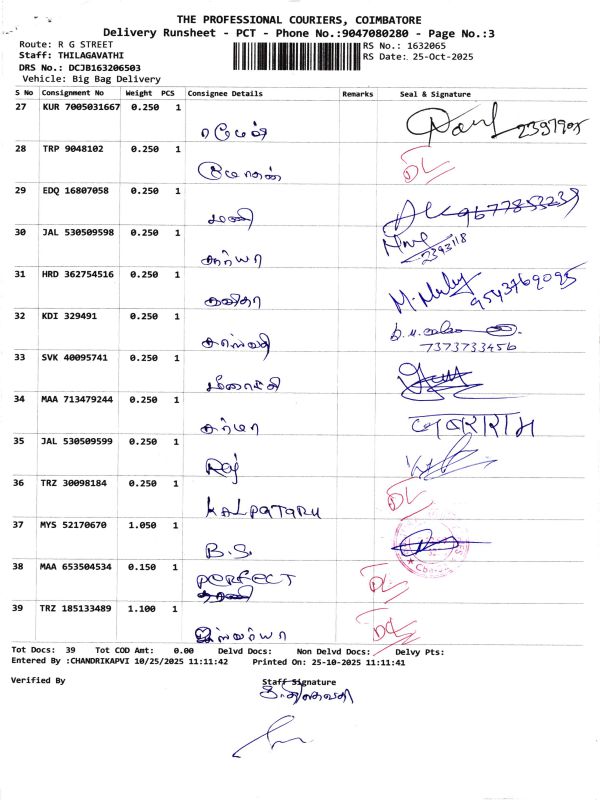 THE PROFESSIONAL COURIERS, COIMBATORE
Delivery Runsheet - PCT - Phone No.:9047080280 - Page No.:3
Route: R G STREET
RS No.: 1632065
Staff: THILAGAVATHI
RS Date: 25-Oct-2025
DRS No.: DCJB163206503
Vehicle: Big Bag Delivery
S No Consignment No Weight PCS Consignee Details Remarks Seal & Signature
27 KUR 7005031667 0.250 1
ரமேஷ்
28 TRP 9048102 0.250 1
மோகன் DL
29 EDQ 16807058 0.250 1
மணி 9677853239
30 JAL 530509598 0.250 1
சூர்யா 2393118
31 HRD 362754516 0.250 1
கவிதா 9543769095
32 KDI 329491 0.250 1
சரஸ்வதி
7373733456
33 SVK 40095741 0.250 1
மீனாட்சி
34 MAA 713479244 0.250 1
சர்மா
35 JAL 530509599 0.250 1
Raj
36 TRZ 30098184 0.250 1
KALPATARU DL
37 MYS 52170670 1.050 1
B.S.
38 MAA 653504534 0.150 1
PERFECT DL
39 TRZ 185133489 1.100 1
ஐஸ்வர்யா DL
Tot Docs: 39 Tot COD Amt: 0.00 Delvd Docs: Non Delvd Docs: Delvy Pts:
Entered By :CHANDRIKAPVI 10/25/2025 11:11:42 Printed On: 25-10-2025 11:11:41
Verified By Staff Signature